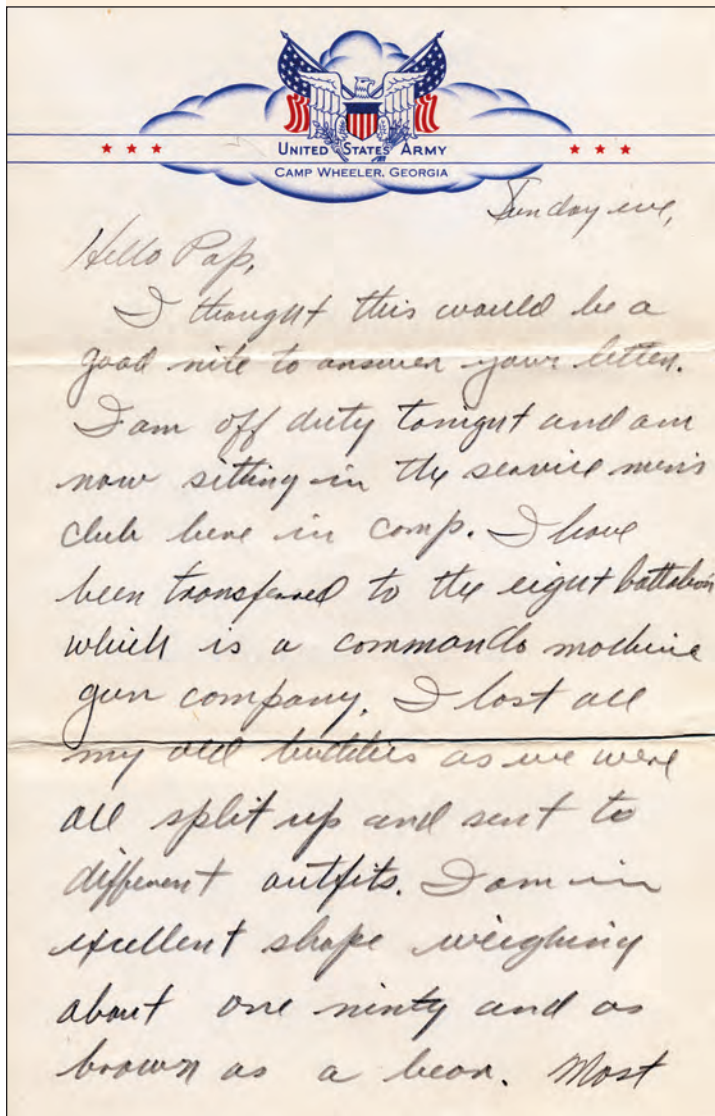 UNITED STATES ARMY
CAMP WHEELER, GEORGIA
Sunday eve,
Hello Pap,
I thought this would be a
good nite to answer your letter.
I am off duty tonight and am
now sitting in the service men's
club here in camp. I have
been transferred to the eight battalion
which is a commando machine
gun company. I lost all
my old buddies as we were
all split up and sent to
different outfits. I am in
excellent shape weighing
about one ninty and as
brown as a bear. Most